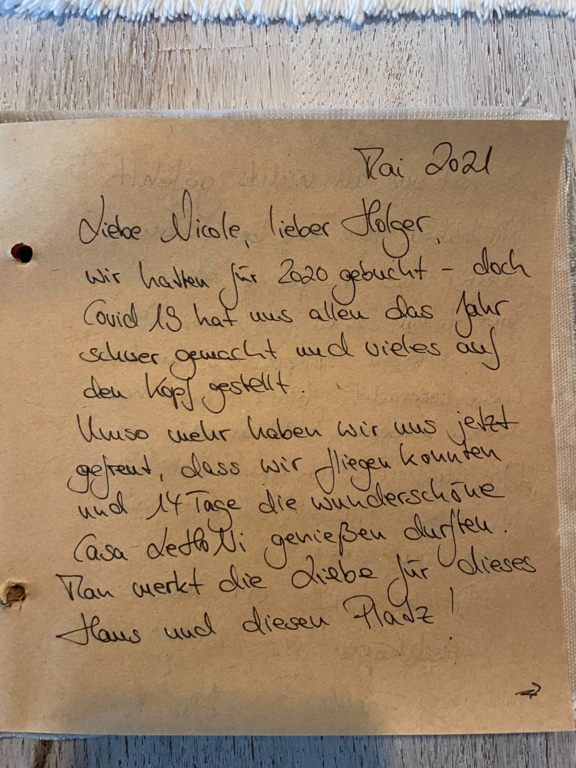 Mai 2021
Liebe Nicole, lieber Holger,
wir hatten für 2020 gebucht - doch
Covid 19 hat uns allen das Jahr
schwer gemacht und vieles auf
den Kopf gestellt.
Umso mehr haben wir uns jetzt
gefreut, dass wir fliegen konnten
und 14 Tage die wunderschöne
Casa genießen durften.
Man merkt die Liebe für dieses
Haus und diesen Platz!
→